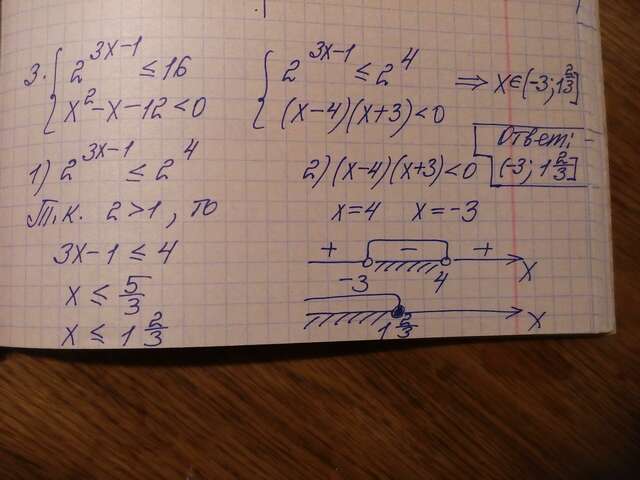 3. { 2^(3x-1) ≤ 16
x² - x - 12 < 0
{ 2^(3x-1) ≤ 2^4
(x-4)(x+3) < 0
⇒ x ∈ (-3; 1 2/3]
Ответ:
(-3; 1 2/3]
1) 2^(3x-1) ≤ 2^4
Т.к. 2 > 1, то
3x - 1 ≤ 4
x ≤ 5/3
x ≤ 1 2/3
2) (x-4)(x+3) < 0
x = 4 x = -3
+ - +
-3 4 x
1 2/3 x